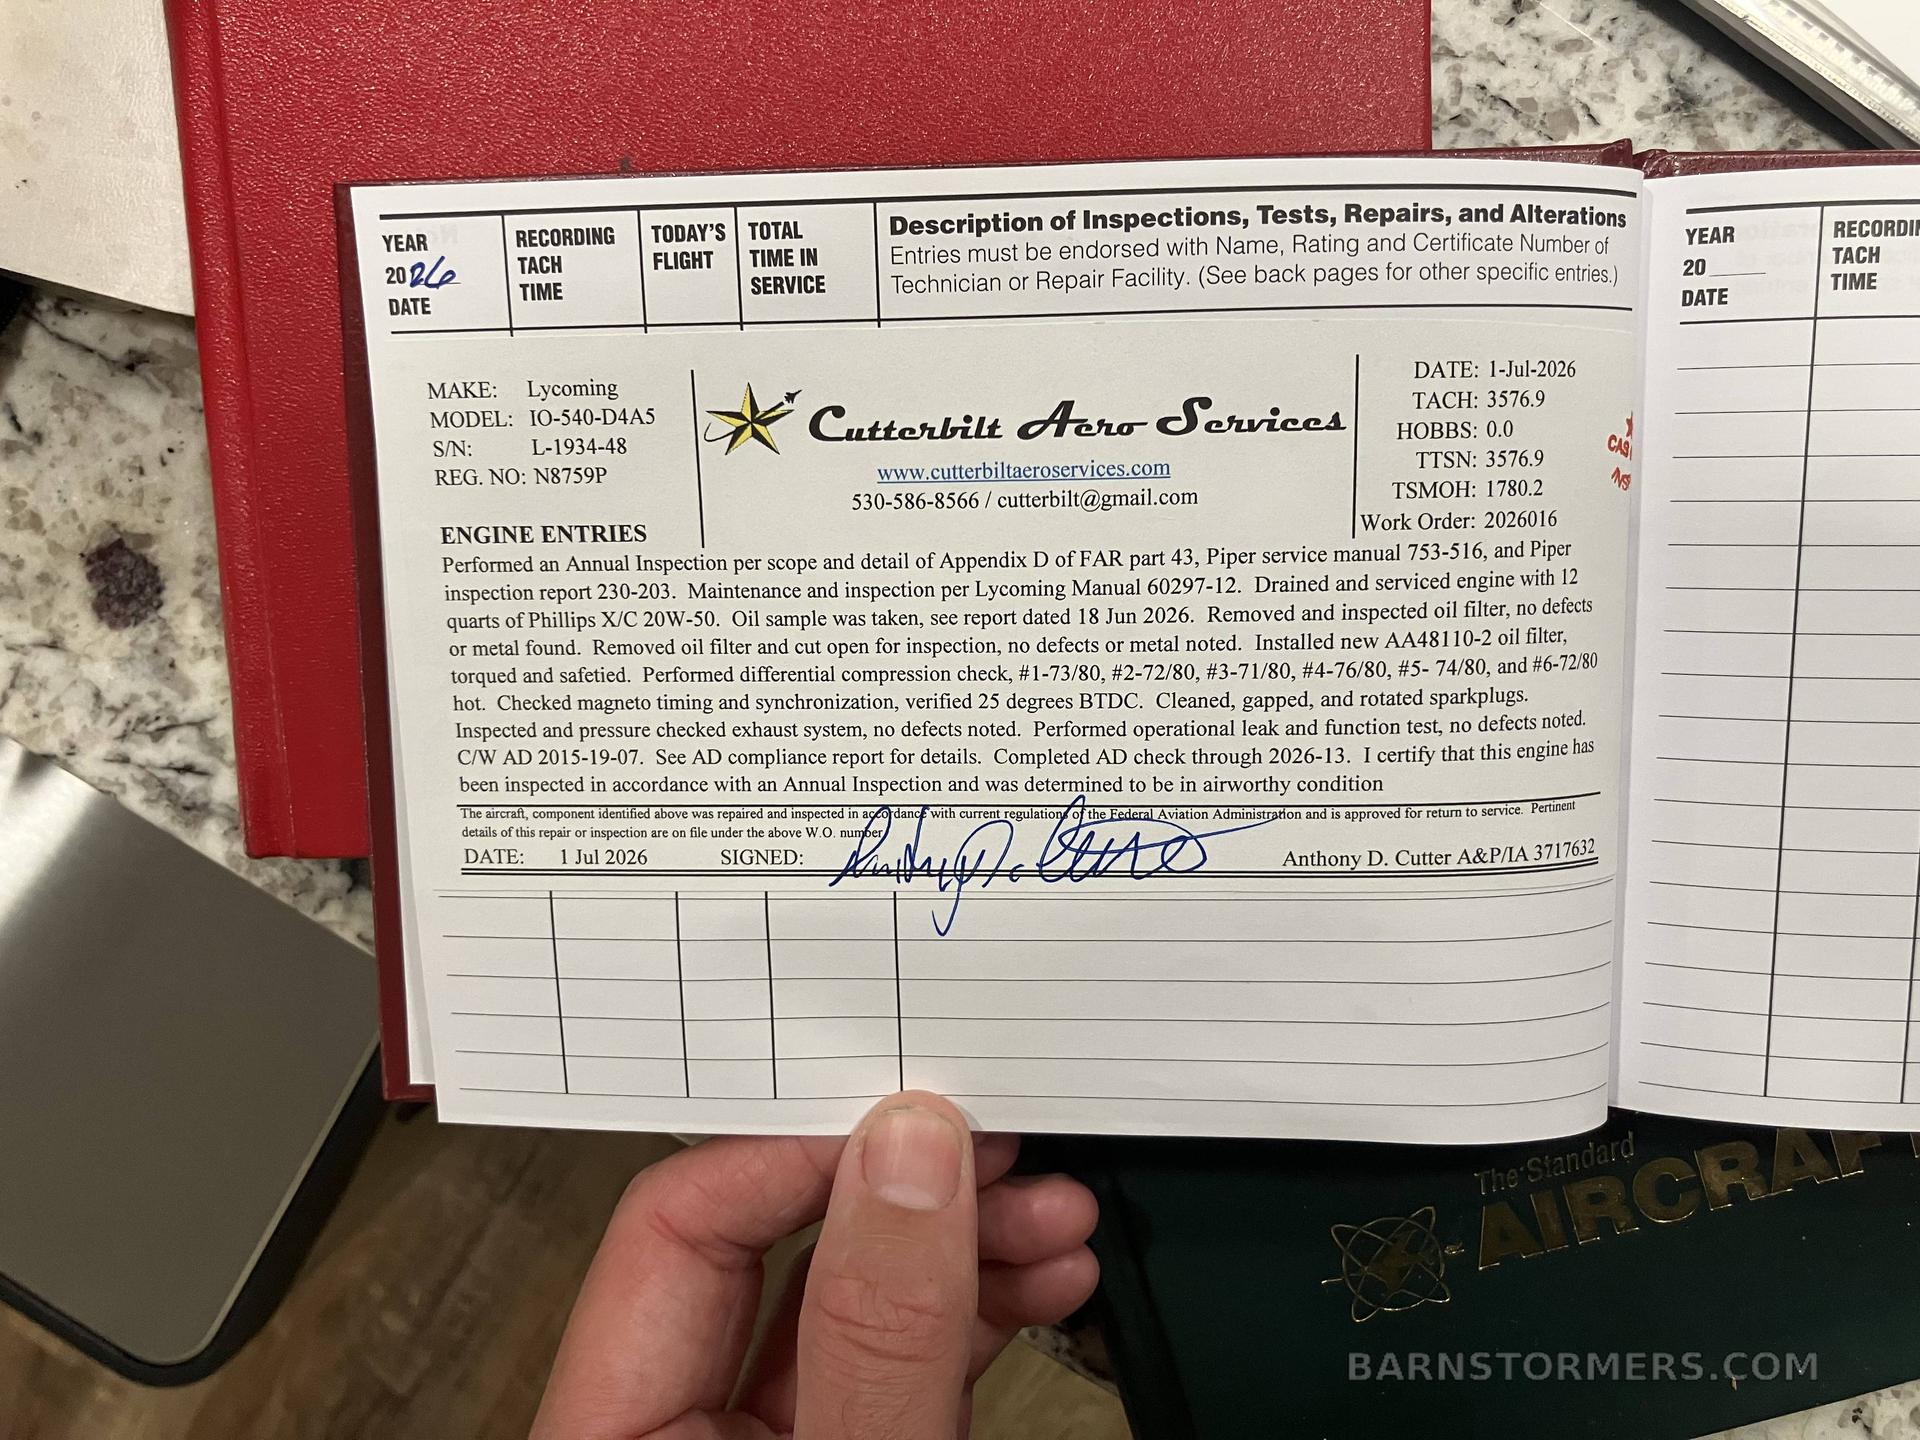 YEAR
2026
DATE
RECORDING
TACH
TIME
TODAY'S
FLIGHT
TOTAL
TIME IN
SERVICE
Description of Inspections, Tests, Repairs, and Alterations
Entries must be endorsed with Name, Rating and Certificate Number of
Technician or Repair Facility. (See back pages for other specific entries.)
MAKE: Lycoming
MODEL: IO-540-D4A5
S/N: L-1934-48
REG. NO: N8759P
Cutterbilt Aero Services
www.cutterbiltaeroservices.com
530-586-8566 / cutterbilt@gmail.com
DATE: 1-Jul-2026
TACH: 3576.9
HOBBS: 0.0
TTSN: 3576.9
TSMOH: 1780.2
Work Order: 2026016
ENGINE ENTRIES
Performed an Annual Inspection per scope and detail of Appendix D of FAR part 43, Piper service manual 753-516, and Piper
inspection report 230-203. Maintenance and inspection per Lycoming Manual 60297-12. Drained and serviced engine with 12
quarts of Phillips X/C 20W-50. Oil sample was taken, see report dated 18 Jun 2026. Removed and inspected oil filter, no defects
or metal found. Removed oil filter and cut open for inspection, no defects or metal noted. Installed new AA48110-2 oil filter,
torqued and safetied. Performed differential compression check, #1-73/80, #2-72/80, #3-71/80, #4-76/80, #5- 74/80, and #6-72/80
hot. Checked magneto timing and synchronization, verified 25 degrees BTDC. Cleaned, gapped, and rotated sparkplugs.
Inspected and pressure checked exhaust system, no defects noted. Performed operational leak and function test, no defects noted.
C/W AD 2015-19-07. See AD compliance report for details. Completed AD check through 2026-13. I certify that this engine has
been inspected in accordance with an Annual Inspection and was determined to be in airworthy condition
The aircraft, component identified above was repaired and inspected in accordance with current regulations of the Federal Aviation Administration and is approved for return to service. Pertinent
details of this repair or inspection are on file under the above W.O. number
DATE: 1 Jul 2026 SIGNED: Anthony D. Cutter A&P/IA 3717632
YEAR
20
DATE
TACH
TIME
The Standard
BARNSTORMERS.COM